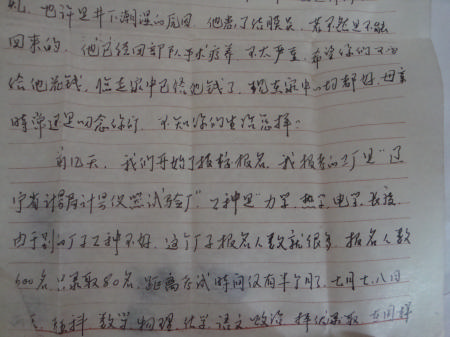 礼，也许是井下潮湿的原因，他患了结膜炎，若不然是不能
回来的，他已经回部队手术疗养，不太严重，希望你们不必
给他花钱，临走家中已给他钱了，现在家中一切都好，母亲
时常还是叨念你们，不知你的生活怎样？
前几天，我们开始了报考报名，我报考的工厂是“辽
宁省计量局计量仪器试验厂”，工种是“力学，热学，电学，长度，
由于别的厂子工种不好，这个厂子报名人数就很多，报名人数
600名，只录取80名，距离考试时间仅有半个月了，七月七、八日
数学，物理，化学，语文，政治，择优录取，